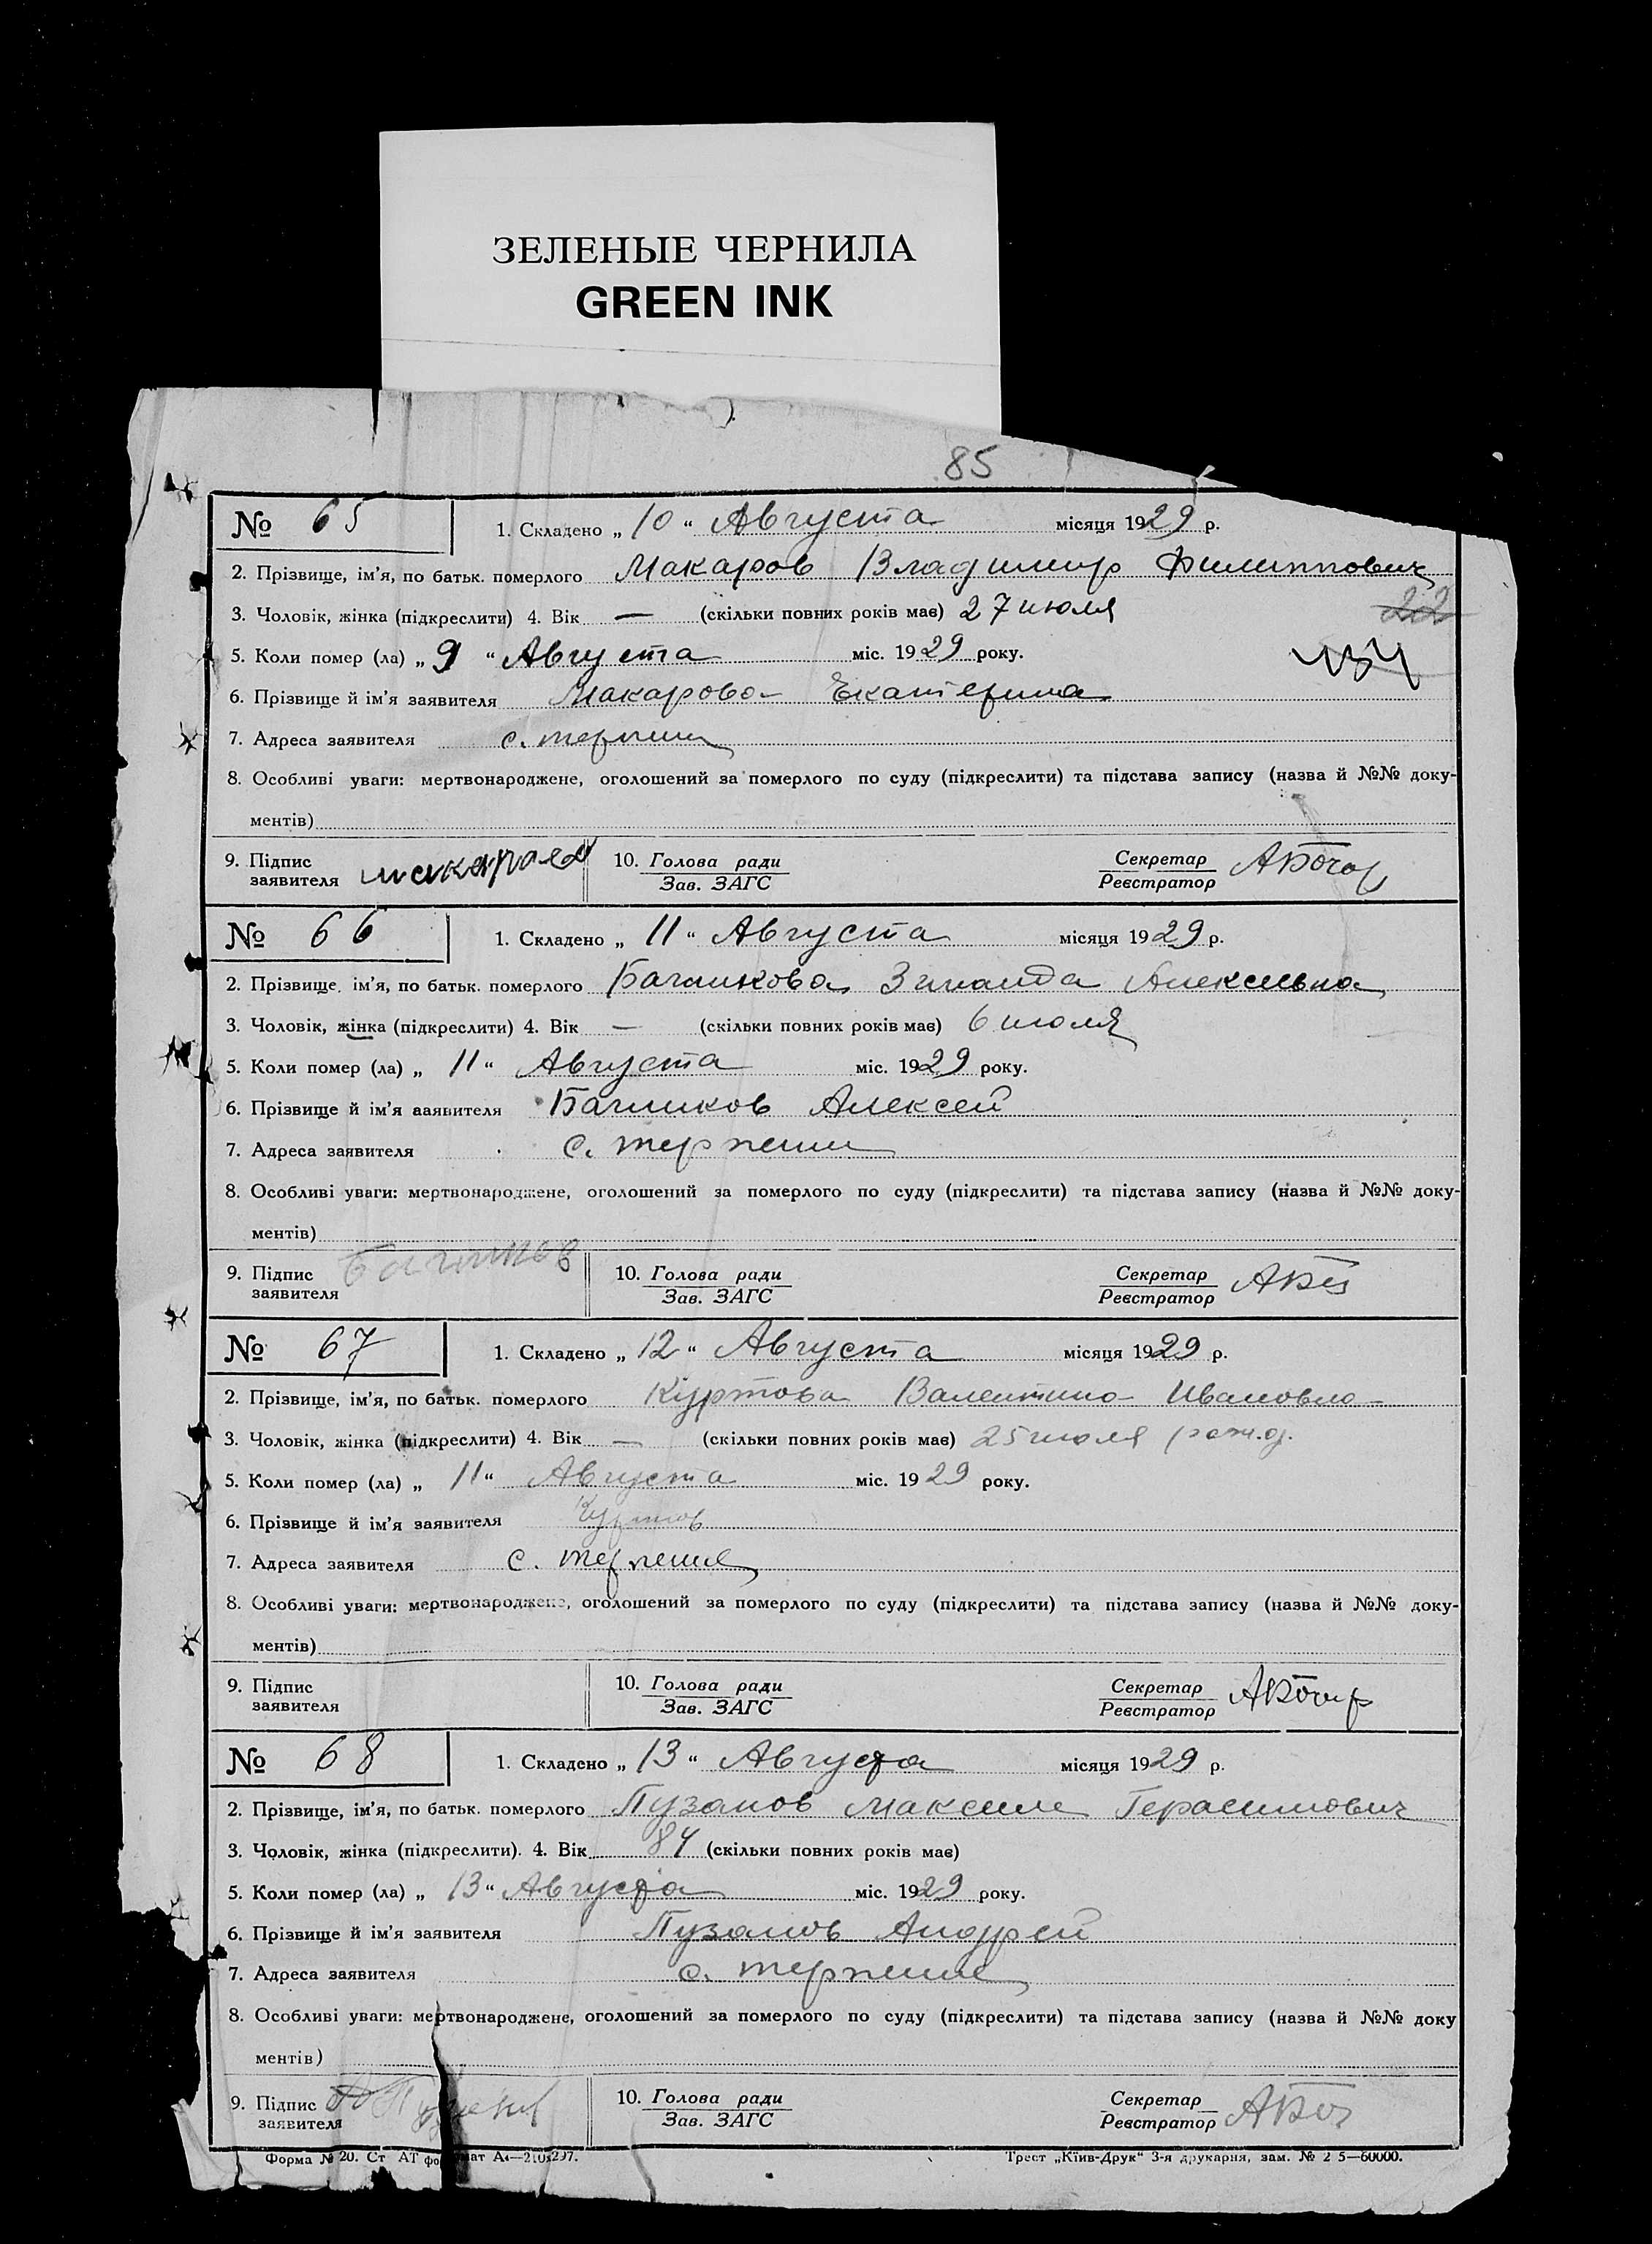 ЗЕЛЕНЫЕ ЧЕРНИЛА
GREEN INK
85
№ 65 1. Складено „ 10 “ Августа місяця 1929 р.
2. Прізвище, ім’я, по батьк. померлого Макаров Владимир Филиппович
3. Чоловік, жінка (підкреслити) 4. Вік — (скільки повних років має) 27 июля 22
5. Коли помер (ла) „ 9 “ Августа міс. 1929 року.
6. Прізвище й ім’я заявителя Макарова Екатерина
7. Адреса заявителя с. терпение
8. Особливі уваги: мертвонароджене, оголошений за померлого по суду (підкреслити) та підстава запису (назва й №№ доку-
ментів)
9. Підпис заявителя 10. Голова ради Зав. ЗАГС Секретар Реєстратор
№ 66 1. Складено „ 11 “ Августа місяця 1929 р.
2. Прізвище, ім’я, по батьк. померлого Багликова Зинаида Алексеевна
3. Чоловік, жінка (підкреслити) 4. Вік — (скільки повних років має) 6 июля
5. Коли помер (ла) „ 11 “ Августа міс. 1929 року.
6. Прізвище й ім’я заявителя Багликов Алексей
7. Адреса заявителя с. терпение
8. Особливі уваги: мертвонароджене, оголошений за померлого по суду (підкреслити) та підстава запису (назва й №№ доку-
ментів)
9. Підпис заявителя Багликов 10. Голова ради Зав. ЗАГС Секретар Реєстратор
№ 67 1. Складено „ 12 “ Августа місяця 1929 р.
2. Прізвище, ім’я, по батьк. померлого Куртова Валентина Ивановна
3. Чоловік, жінка (підкреслити) 4. Вік — (скільки повних років має) 25 июля рожд.
5. Коли помер (ла) „ 11 “ Августа міс. 1929 року.
6. Прізвище й ім’я заявителя Куртов
7. Адреса заявителя с. терпение
8. Особливі уваги: мертвонароджене, оголошений за померлого по суду (підкреслити) та підстава запису (назва й №№ доку-
ментів)
9. Підпис заявителя 10. Голова ради Зав. ЗАГС Секретар Реєстратор
№ 68 1. Складено „ 13 “ Августа місяця 1929 р.
2. Прізвище, ім’я, по батьк. померлого Пузанов Максим Герасимович
3. Чоловік, жінка (підкреслити). 4. Вік 84 (скільки повних років має)
5. Коли помер (ла) „ 13 “ Августа міс. 1929 року.
6. Прізвище й ім’я заявителя Пузанов Андрей
7. Адреса заявителя с. терпение
8. Особливі уваги: мертвонароджене, оголошений за померлого по суду (підкреслити) та підстава запису (назва й №№ доку
ментів)
9. Підпис заявителя 10. Голова ради Зав. ЗАГС Секретар Реєстратор
Форма № 20. Ст АТ формат А4—210х297. Трест „Київ-Друк“ 3-я друкарня, зам. № 2 5—60000.